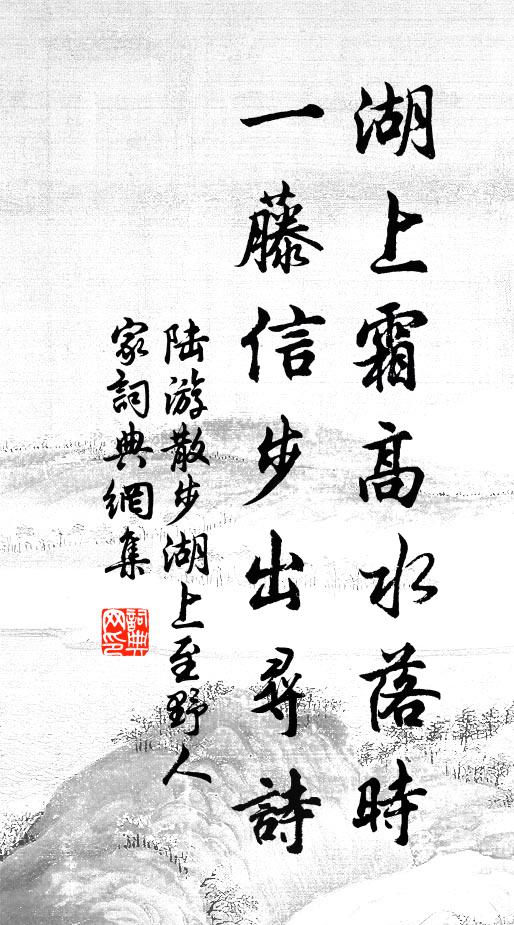 湖上霜高水落時
一藤信步出尋詩
陆游散步湖上至野人
家詞典網集
詞典网印